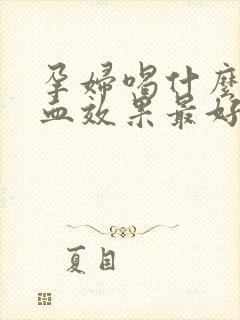 孕婦唱什麼
血效果最好
夏目